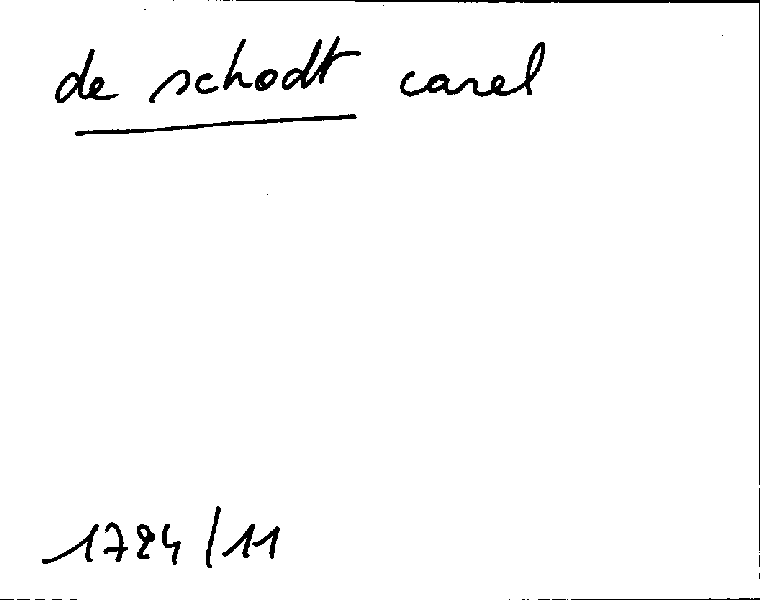 de schodt carel
1724/11